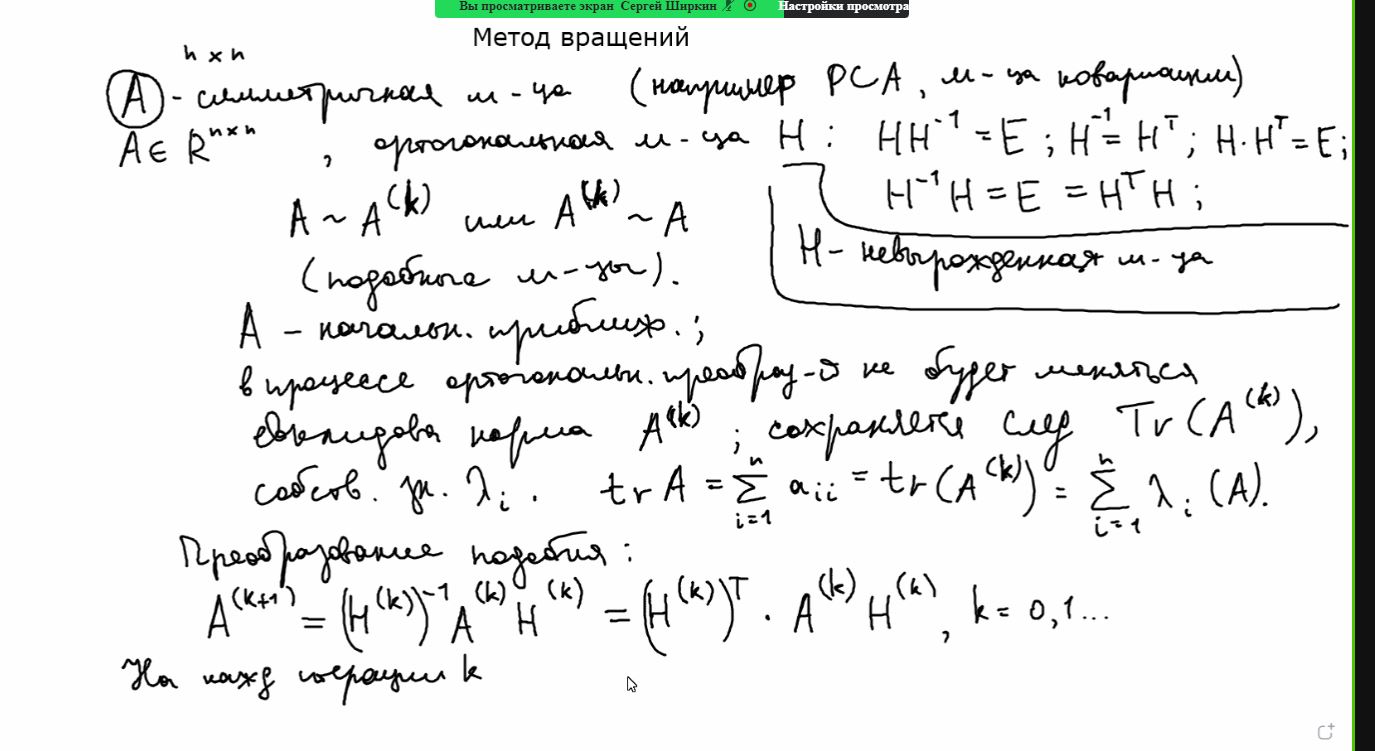 Вы просматриваете экран Сергей Ширкин Настройки просмотра
Метод вращений
n × n
A - симметричная м-ца (например PCA, м-ца ковариации)
A ∈ R^(n×n), ортогональная м-ца H : HH^(-1) = E ; H^(-1) = H^T ; H·H^T = E;
H^(-1) H = E = H^T H ;
A ~ A^(k) или A^(k) ~ A
H - невырожденная м-ца
(подобные м-цы).
A - начальн. приближ. ;
в процессе ортогональн. преобраз-я не будет меняться
евклидова норма A^(k) ; сохраняется след Tr(A^(k)),
собств. зн. λ_i . tr A = ∑_(i=1)^n a_ii = tr(A^(k)) = ∑_(i=1)^n λ_i (A).
Преобразование подобия :
A^(k+1) = (H^(k))^(-1) A^(k) H^(k) = (H^(k))^T · A^(k) H^(k), k = 0,1...
На кажд итерации k